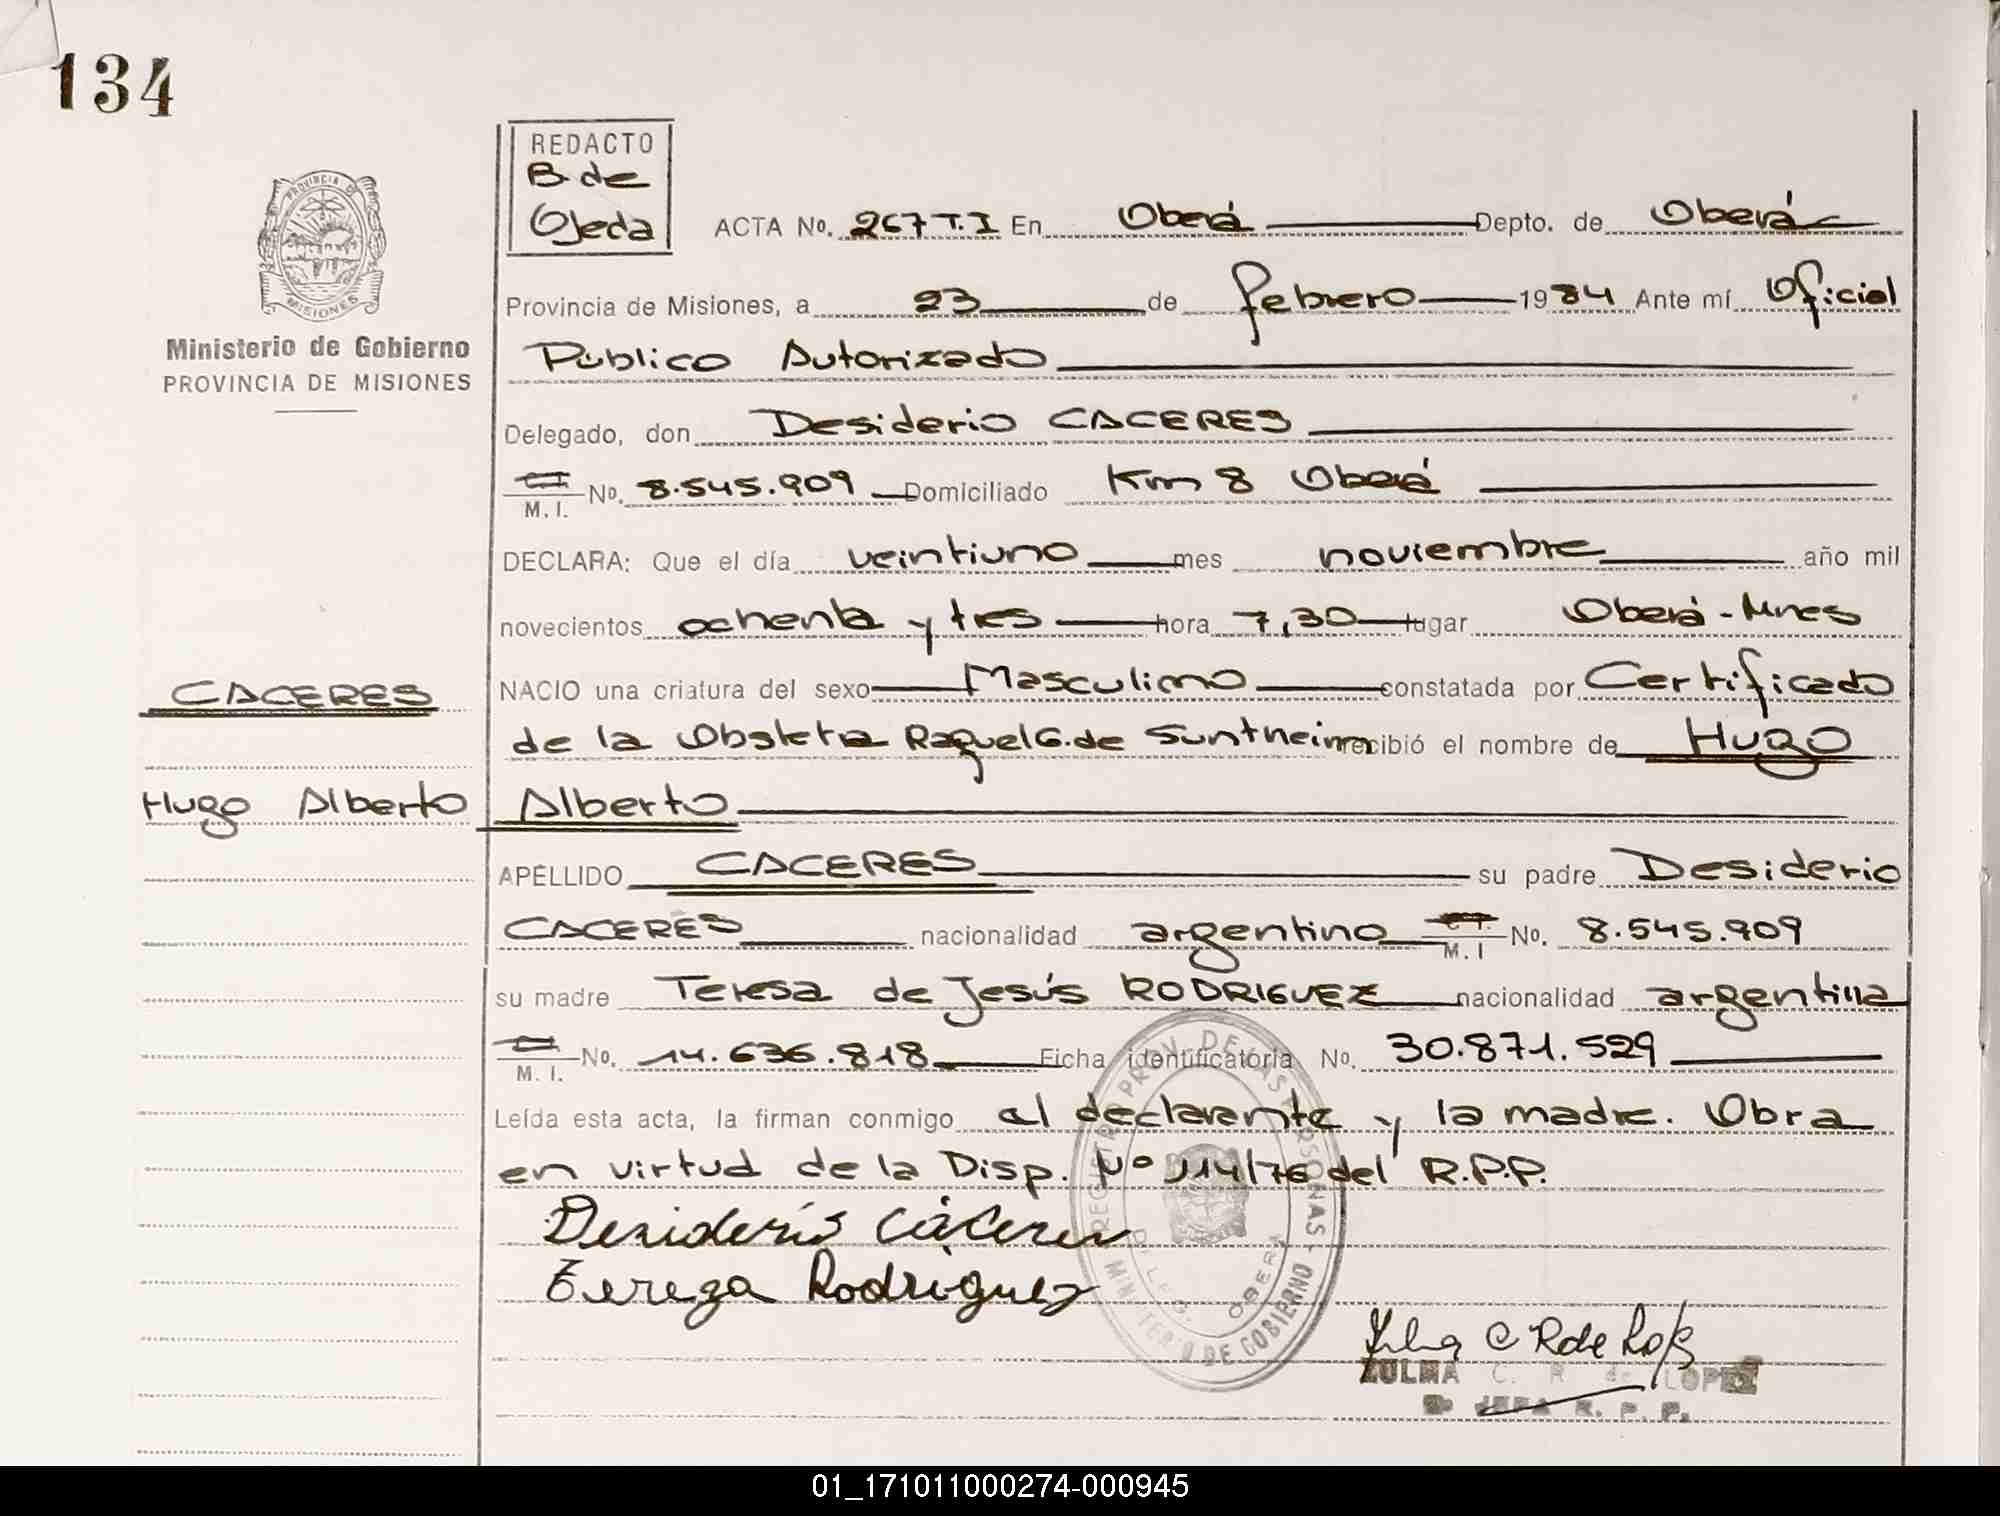 134
REDACTO
B. de
Ojeda
ACTA No. 267 T.I En Oberá Depto. de Oberá
PROVINCIA DE
MISIONES
Provincia de Misiones, a 23 de febrero 1984 Ante mí Oficial
Ministerio de Gobierno
PROVINCIA DE MISIONES
Público Autorizado
Delegado, don Desiderio CACERES
M. I. No. 8.545.909 Domiciliado Km 8 Oberá
DECLARA: Que el día veintiuno mes noviembre año mil
novecientos ochenta y tres hora 7,30 lugar Oberá - Mnes
CACERES
NACIO una criatura del sexo Masculino constatada por Certificado
de la Obstetra Raquel G. de Suntheim recibió el nombre de Hugo
Hugo Alberto
Alberto
APELLIDO CACERES su padre Desiderio
CACERES nacionalidad argentino M. I No. 8.545.909
su madre Teresa de Jesús RODRIGUEZ nacionalidad argentina
M. I. No. 14.636.818 Ficha identificatoria No. 30.871.529
Leída esta acta, la firman conmigo el declarante y la madre. Obra
en virtud de la Disp. Nº 114/76 del R.P.P.
Desiderio Cáceres
Tereza Rodriguez
REGISTRO PROV. DE LAS PERSONAS - MINISTERIO DE GOBIERNO
DELEG. OBERA
ZULMA C. R. de LOPEZ
JEFA R. P. P.
01_171011000274-000945